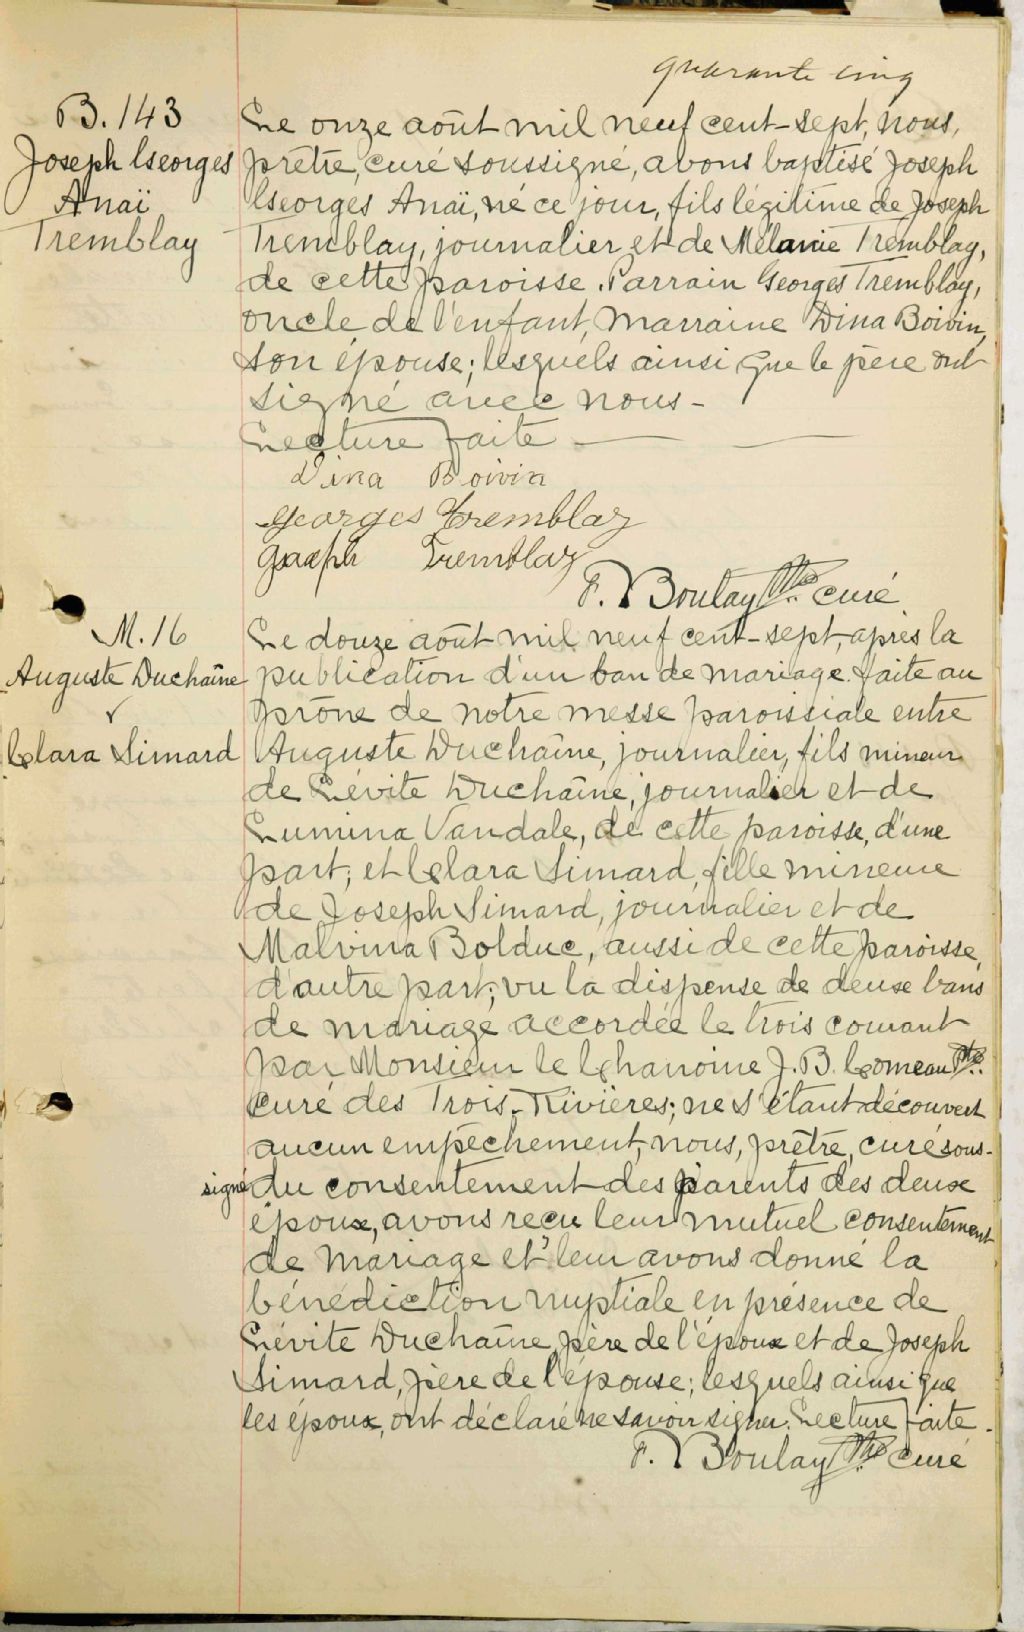 quarante cinq
B. 143
Joseph Georges
Anaï
Tremblay
Le onze août mil neuf cent-sept, nous,
prêtre, curé soussigné, avons baptisé Joseph
Georges Anaï, né ce jour, fils légitime de Joseph
Tremblay, journalier et de Mélanie Tremblay,
de cette paroisse. Parrain Georges Tremblay,
oncle de l'enfant, Marraine Dina Boivin,
son épouse; lesquels ainsi que le père ont
signé avec nous -
Lecture faite
Dina Boivin
Georges Tremblay
Joseph Tremblay
F. Boulay Ptre curé
M. 16
Auguste Duchaîne
Clara Simard
Le douze août mil neuf cent-sept, après la
publication d'un ban de mariage faite au
prône de notre messe paroissiale entre
Auguste Duchaîne, journalier, fils mineur
de Lévite Duchaîne, journalier et de
Lumina Vandale, de cette paroisse, d'une
part; et Clara Simard, fille mineure
de Joseph Simard, journalier et de
Malvina Bolduc, aussi de cette paroisse,
d'autre part; vu la dispense de deux bans
de mariage accordée le trois courant
par Monsieur le Chanoine J. B. Comeau Ptre.
curé des Trois-Rivières; ne s'étant découvert
aucun empêchement, nous, prêtre, curé sous-
signé du consentement des parents des deux
époux, avons reçu leur mutuel consentement
de mariage et leur avons donné la
bénédiction nuptiale en présence de
Lévite Duchaîne, père de l'époux et de Joseph
Simard, père de l'épouse; lesquels ainsi que
les époux, ont déclaré ne savoir signer. Lecture faite.
F. Boulay Ptre curé